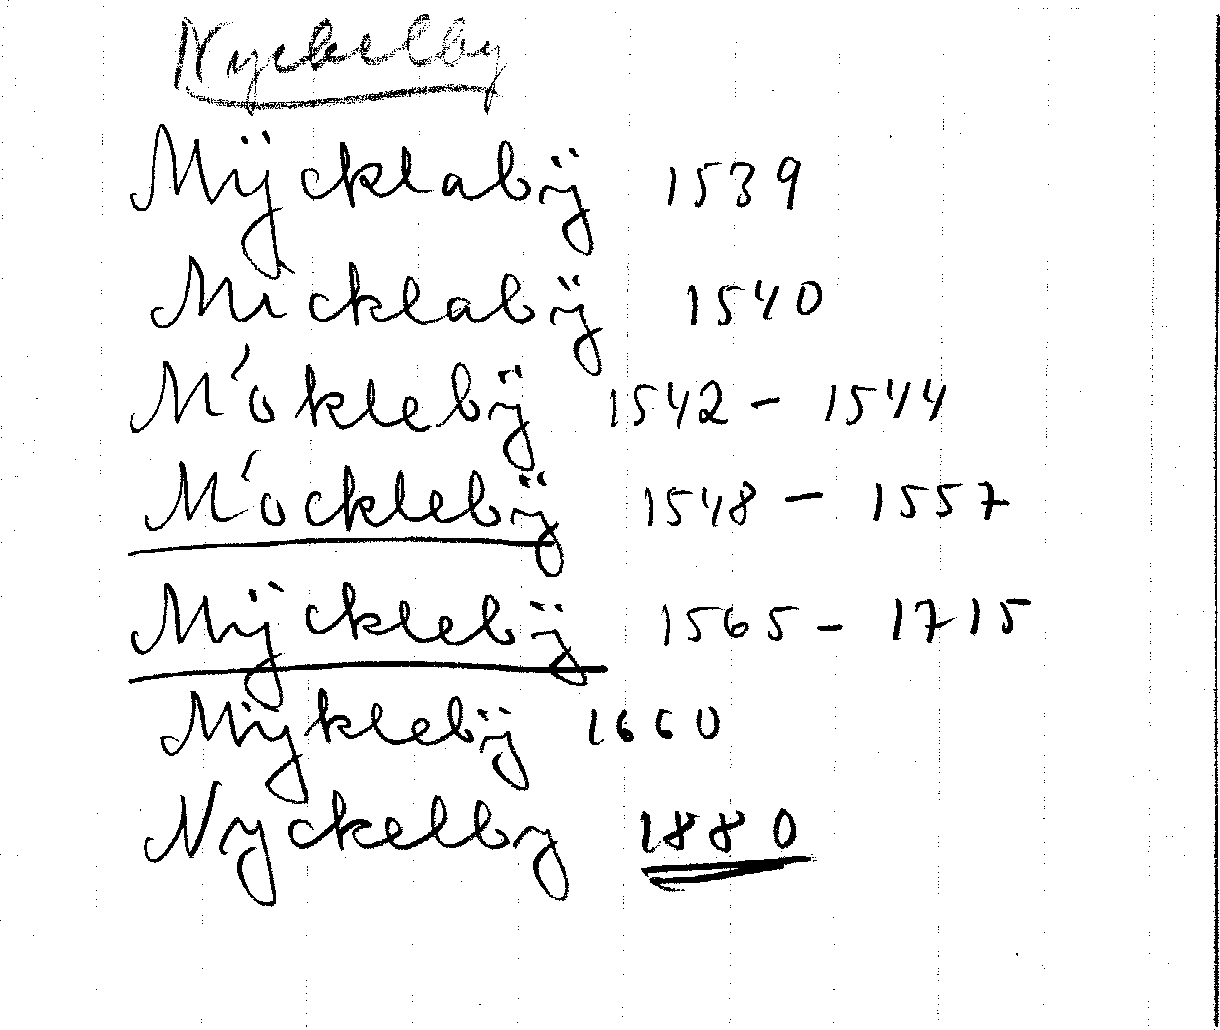 Nyckelby
Mÿcklabÿ 1539
Micklabÿ 1540
M'oklebÿ 1542 - 1544
M'ocklebÿ 1548 - 1557
Mÿcklebÿ 1565 - 1715
Mÿklebÿ 1660
Nyckelby 1880